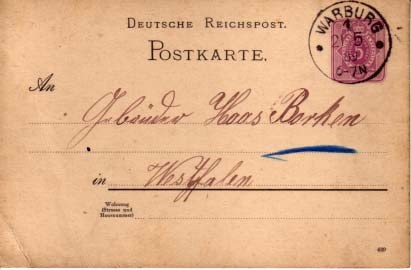 DEUTSCHE REICHSPOST.
POSTKARTE.
WARBURG
1
6-7N
An
Gebrüder Haas Borken
in Westfalen
Wohnung
(Strasse und
Hausnummer)